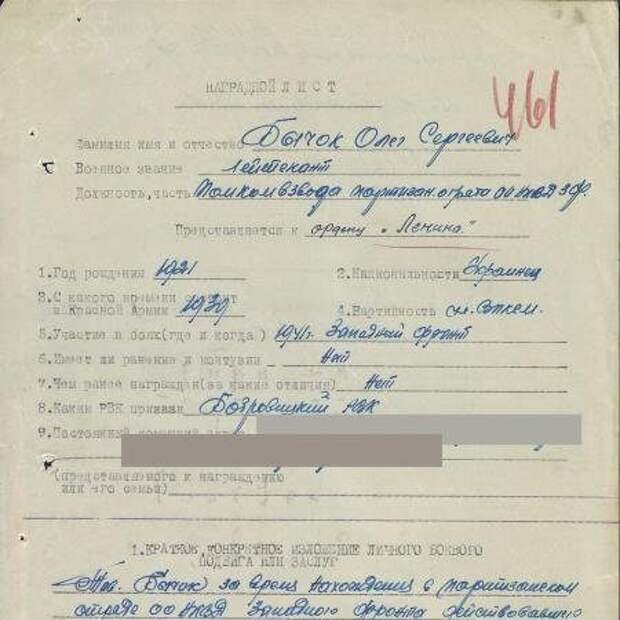 461
НАГРАДНОЙ ЛИСТ
Фамилия имя и отчество Бычок Олег Сергеевич
Военное звание лейтенант
Должность, часть Помкомвзвода партизан отряда ОО НКВД З.Ф.
Представляется к ордену "Ленина"
1.Год рождения 1921
2.Национальность Украинец
3.С какого времени
в Красной Армии 1939
4.Партийность
5.Участие в боях(где и когда) 1941г. Западный фронт
6.Имеет ли ранения и контузии - Нет
7.Чем ранее награжден(за какие отличия) Нет
8.Каким РВК призван РВК
9.Постоянный домашний адрес
(представляемого к награждению
или его семьи)
1.КРАТКОЕ, КОНКРЕТНОЕ ИЗЛОЖЕНИЕ ЛИЧНОГО БОЕВОГО
ПОДВИГА ИЛИ ЗАСЛУГ
Тов. Бычок за время нахождения в партизанском
отряде ОО НКВД Западного Фронта действовавшего